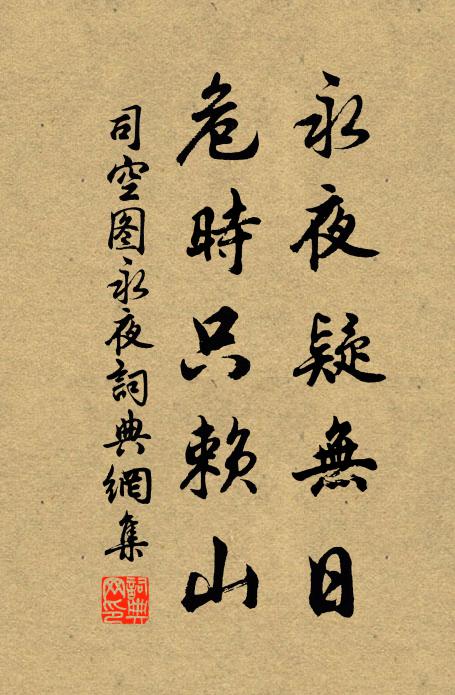 永夜疑無日
危時只賴山
司空图永夜詞典網集
詞典网印